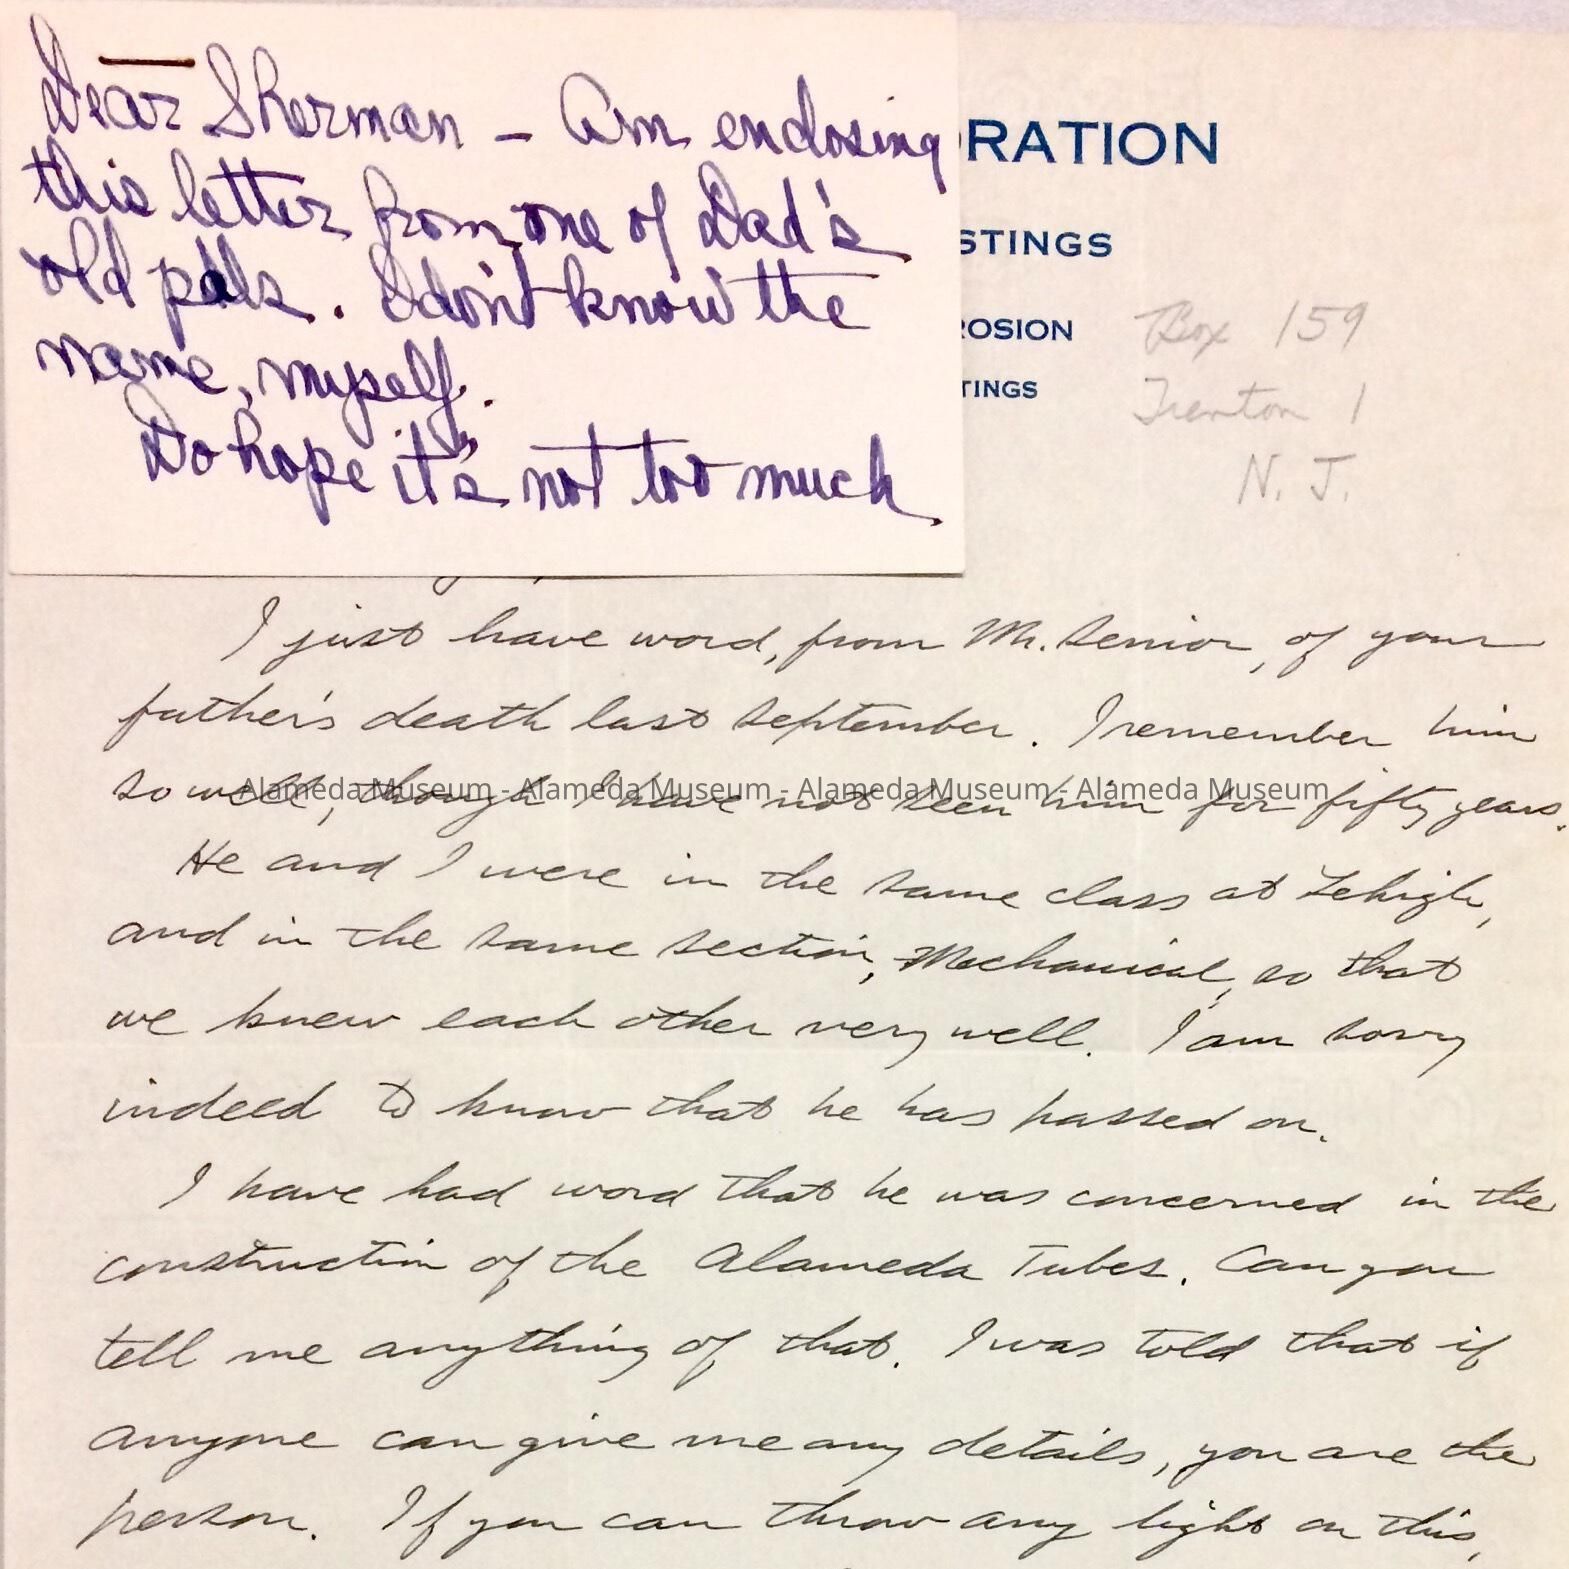 Dear Sherman - Am enclosing
this letter from one of Dad's
old pals. I don't know the
name, myself.
Do hope it's not too much
RATION
STINGS
ROSION
TINGS
Box 159
Trenton 1
N. J.
I just have word, from Mr. Senior, of your
father's death last September. I remember him
so well, though I have not seen him for fifty years.
Alameda Museum - Alameda Museum - Alameda Museum - Alameda Museum
He and I were in the same class at Lehigh,
and in the same section, Mechanical, so that
we knew each other very well. I am sorry
indeed to know that he has passed on.
I have had word that he was concerned in the
construction of the Alameda Tubes. Can you
tell me anything of that. I was told that if
anyone can give me any details, you are the
person. If you can throw any light on this,